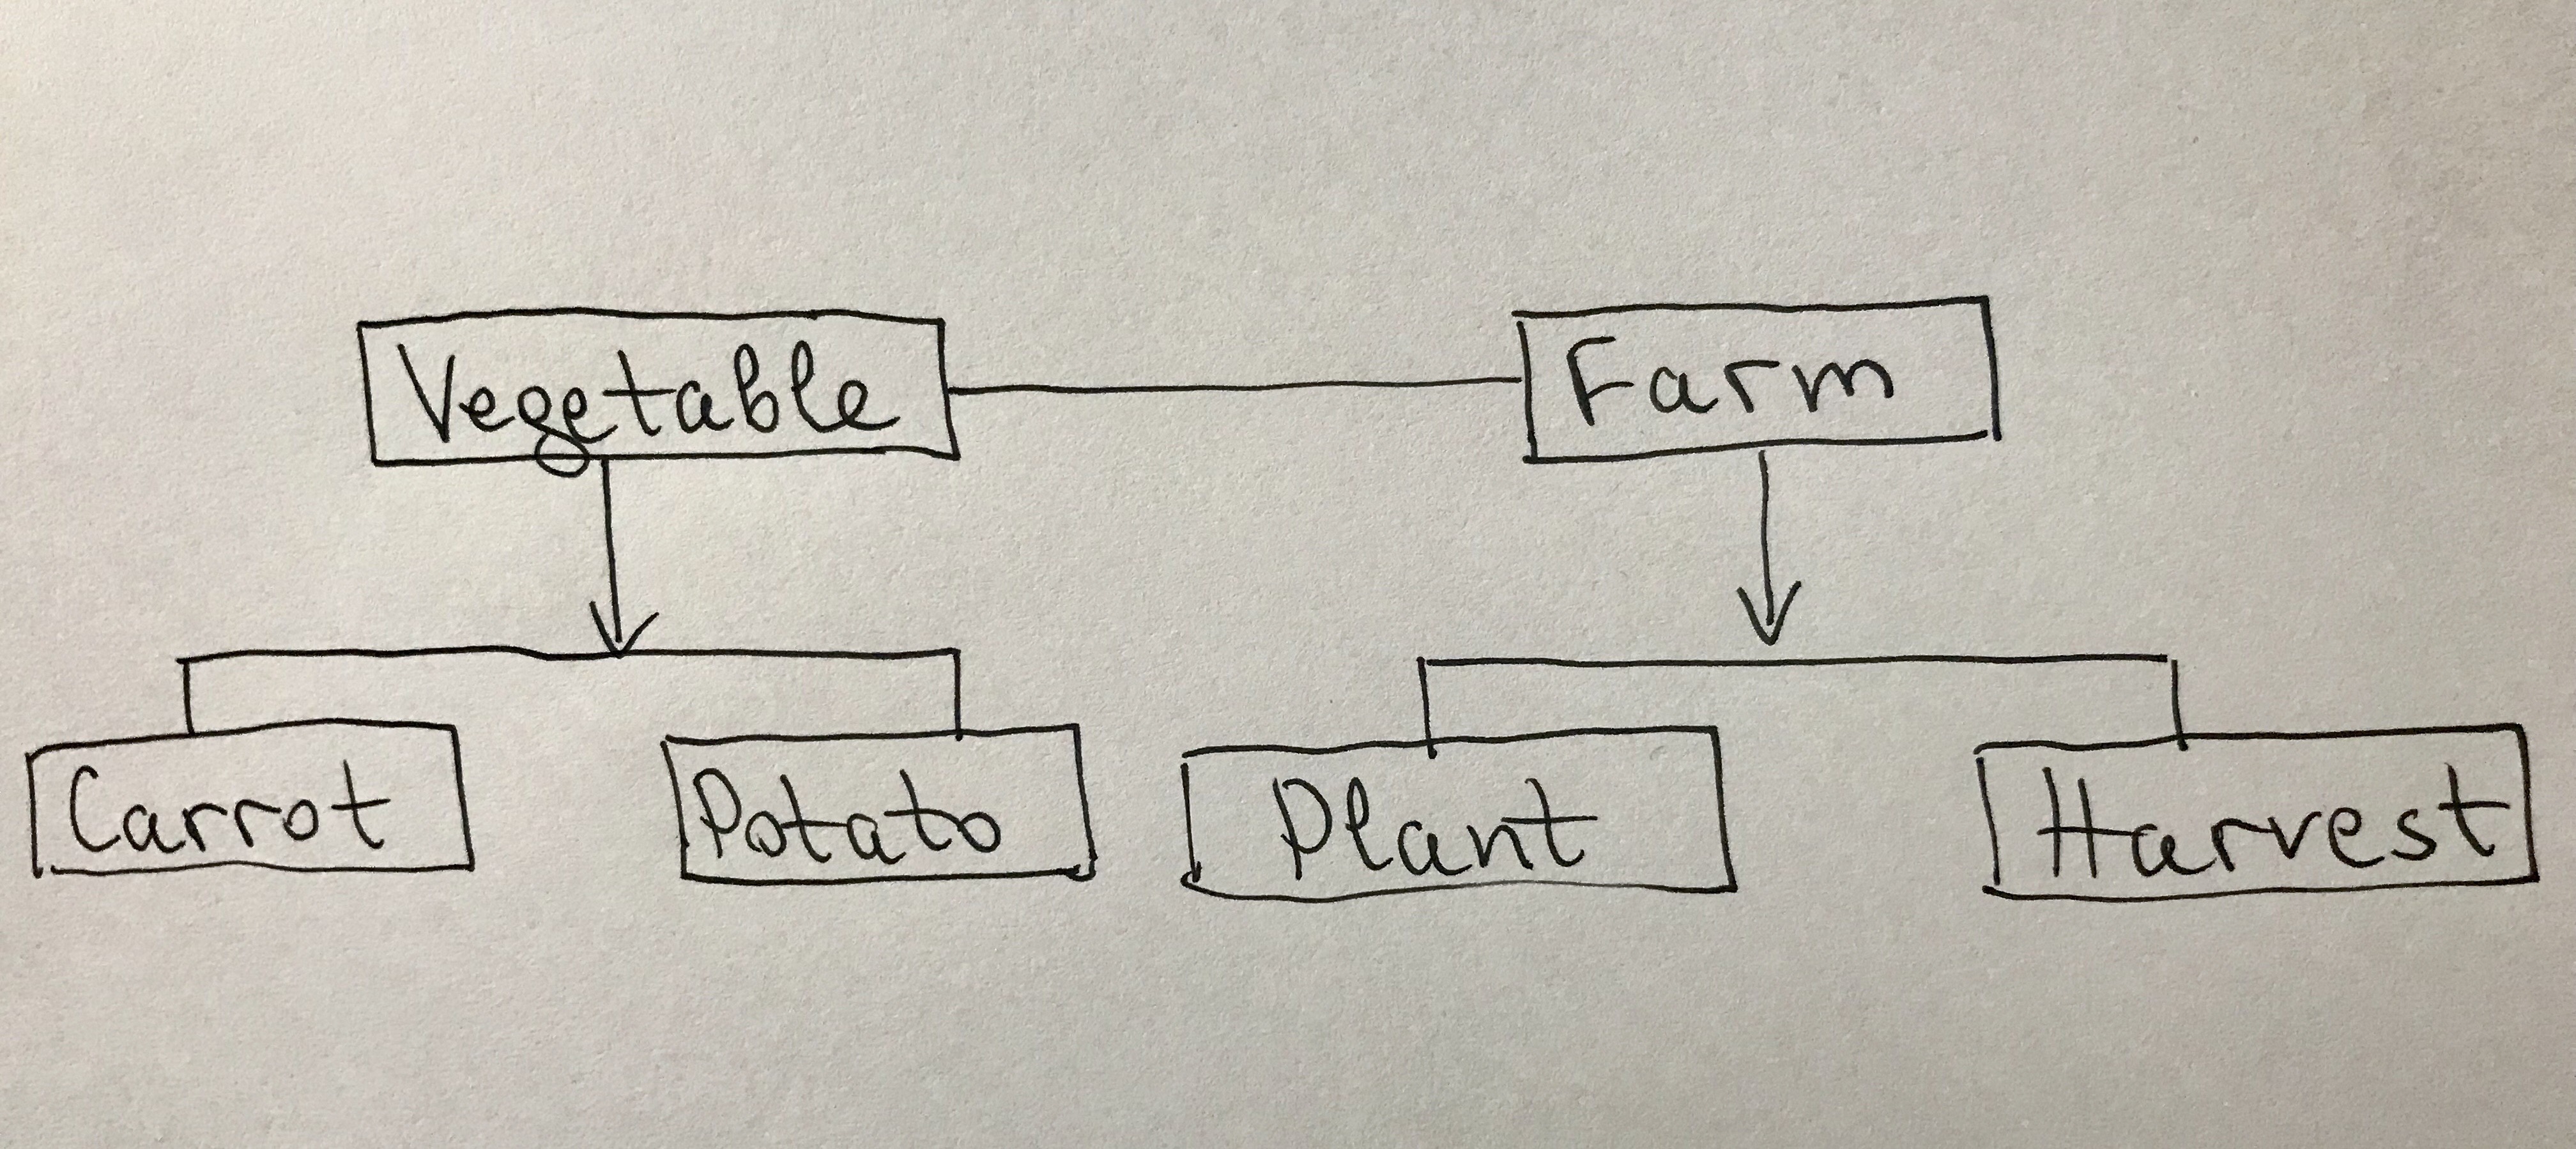 Vegetable
Farm
Carrot
Potato
Plant
Harvest